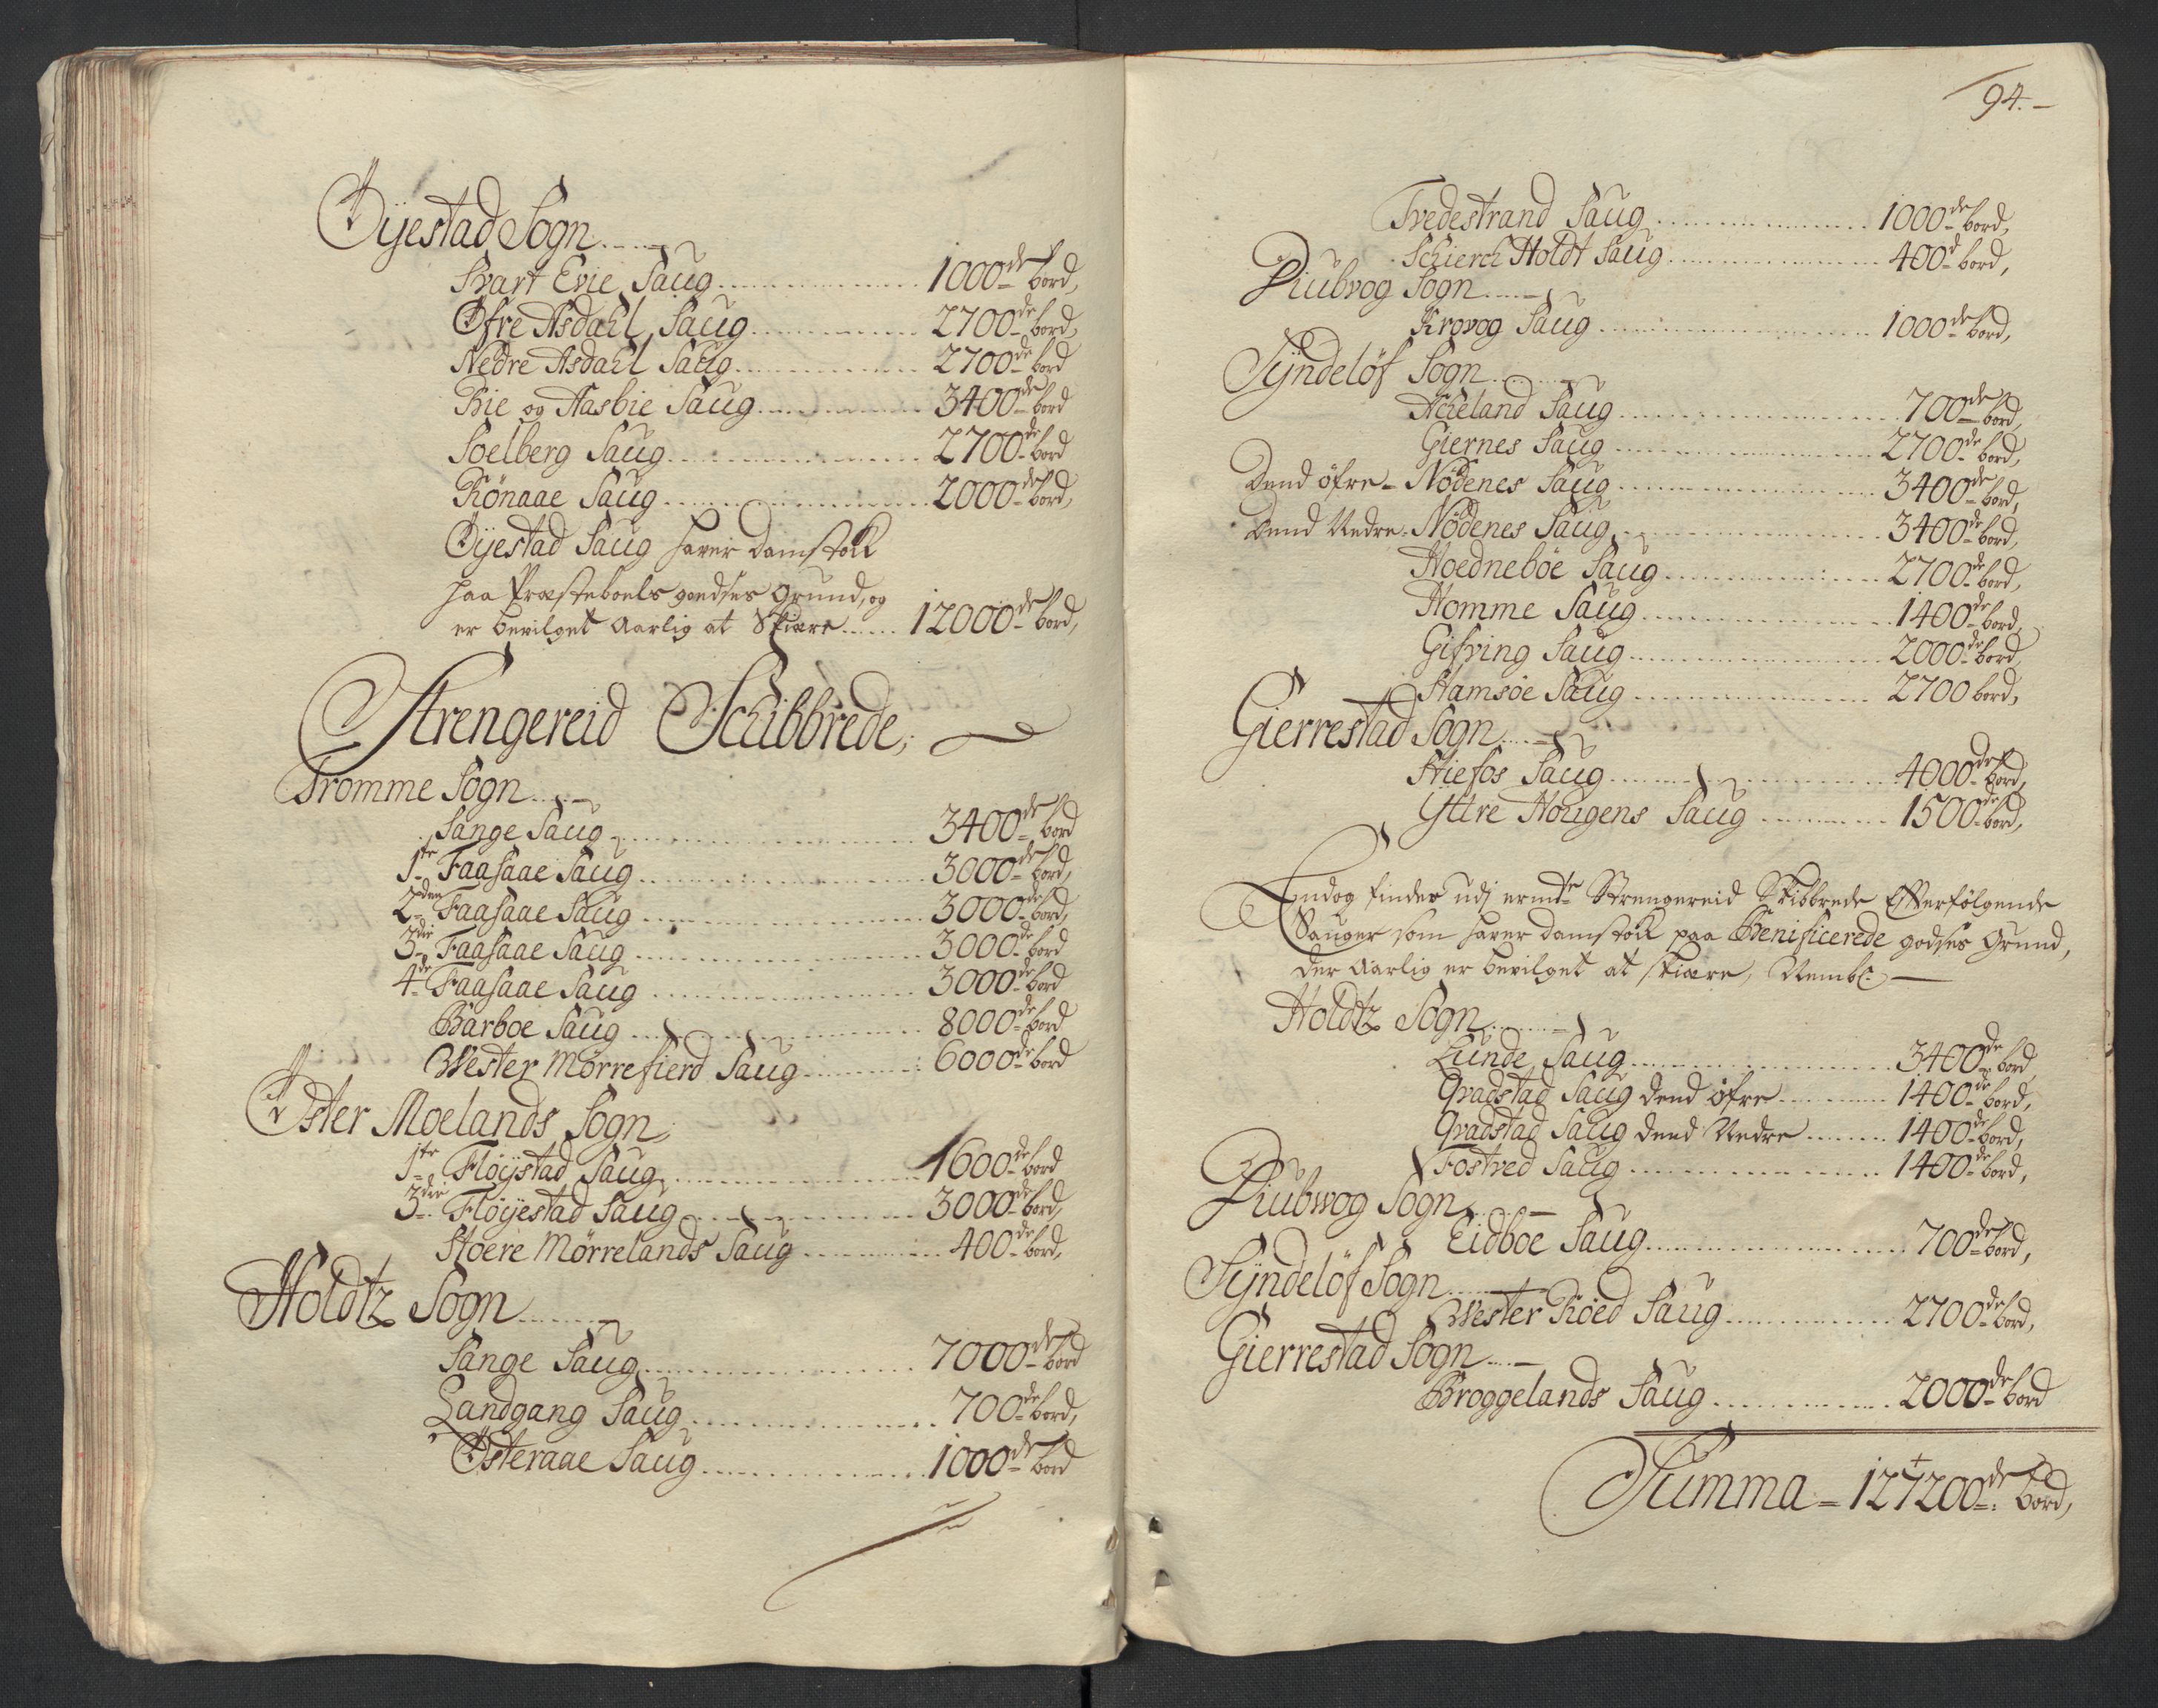 Øyestad Sogn
Svart Evie Saug 1000de bord,
Øfre Asdahl Saug 2700de bord,
Nedre Asdahl Saug 2700de bord
Rie og Aasbie Saug 3400de bord
Soelberg Saug 2700de bord
Rönaae Saug 2000de bord,
Øyestad Saug haver damstock
paa Præsteboels godses grund, og
er bevilget Aarlig at Skiære 12000de bord,
Strengereid Schibbrede,
Tromme Sogn
Sange Saug 3400de bord
1te Faasaae Saug 3000de bord,
2den Faasaae Saug 3000de bord,
3die Faasaae Saug 3000de bord
4de Faasaae Saug 3000de bord
Barboe Saug 8000de bord
Wester Mörrefierd Saug 6000de bord
Øster Moelands Sogn,
1te Flöystad Saug 1600de bord
3die Flöyestad Saug 3000de bord,
Stoere Mörrelands Saug 400de bord,
Holdtz Sogn
Sange Saug 7000de bord
Landgang Saug 700de bord,
Østeraae Saug 1000de bord
94.
Tvedestrand Saug 1000de bord,
Schierch Holdt Saug 400d bord,
Diubvog Sogn
Krovog Saug 1000de bord,
Syndelöf Sogn
Acheland Saug 700de bord,
Giernes Saug 2700de bord,
Dend öfre Nödenes Saug 3400de bord,
Dend Nedre Nödenes Saug 3400de bord,
Hoedneböe Saug 2700de bord,
Homme Saug 1400de bord,
Gifving Saug 2000de bord,
Hamsöe Saug 2700 bord,
Gierrestad Sogn
Stiefos Saug 4000de bord,
Yttre Hougens Saug 1500de bord,
Endog findes udj ermte Strengereid Skibbrede Efterfölgende
Sauger som haver damstock paa Benificerede godses Grund,
der Aarlig er bevilget at skiære, Nembl:
Holdtz Sogn
Lunde Saug 3400de bord
Qvadstad Saug dend öfre 1400de bord,
Qvadstad Saug dend Nedre 1400de bord,
Fostved Saug 1400de bord,
Diubwog Sogn
Eidboe Saug 700de bord,
Syndelöf Sogn
Wester Röed Saug 2700de bord,
Gierrestad Sogn
Broggelands Saug 2000de bord
Summa 127200de bord,